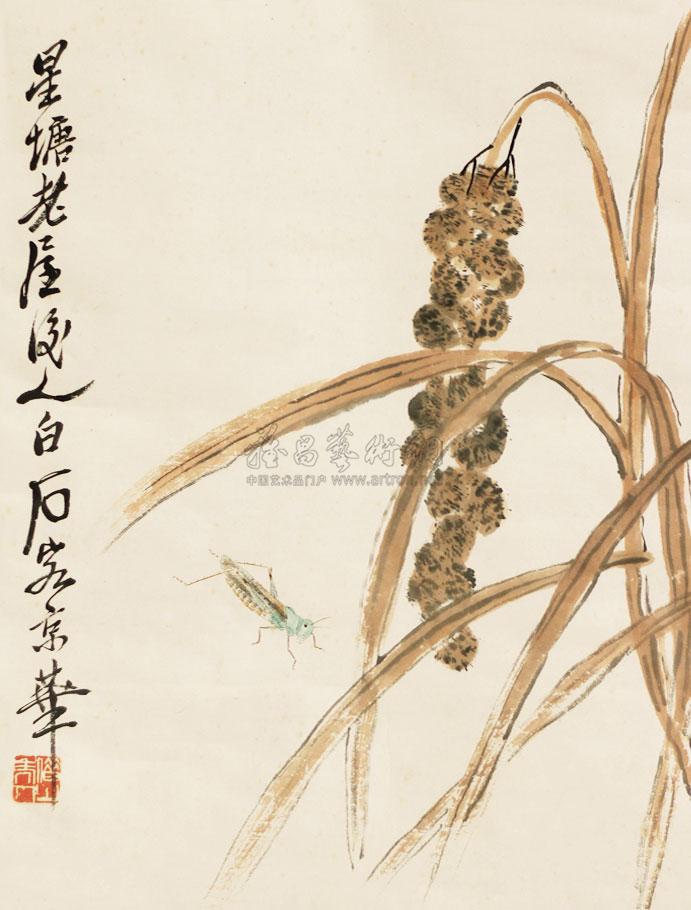 星塘老屋后人白石客京华
雅昌藝術網
中国艺术品门户 www.artron.net